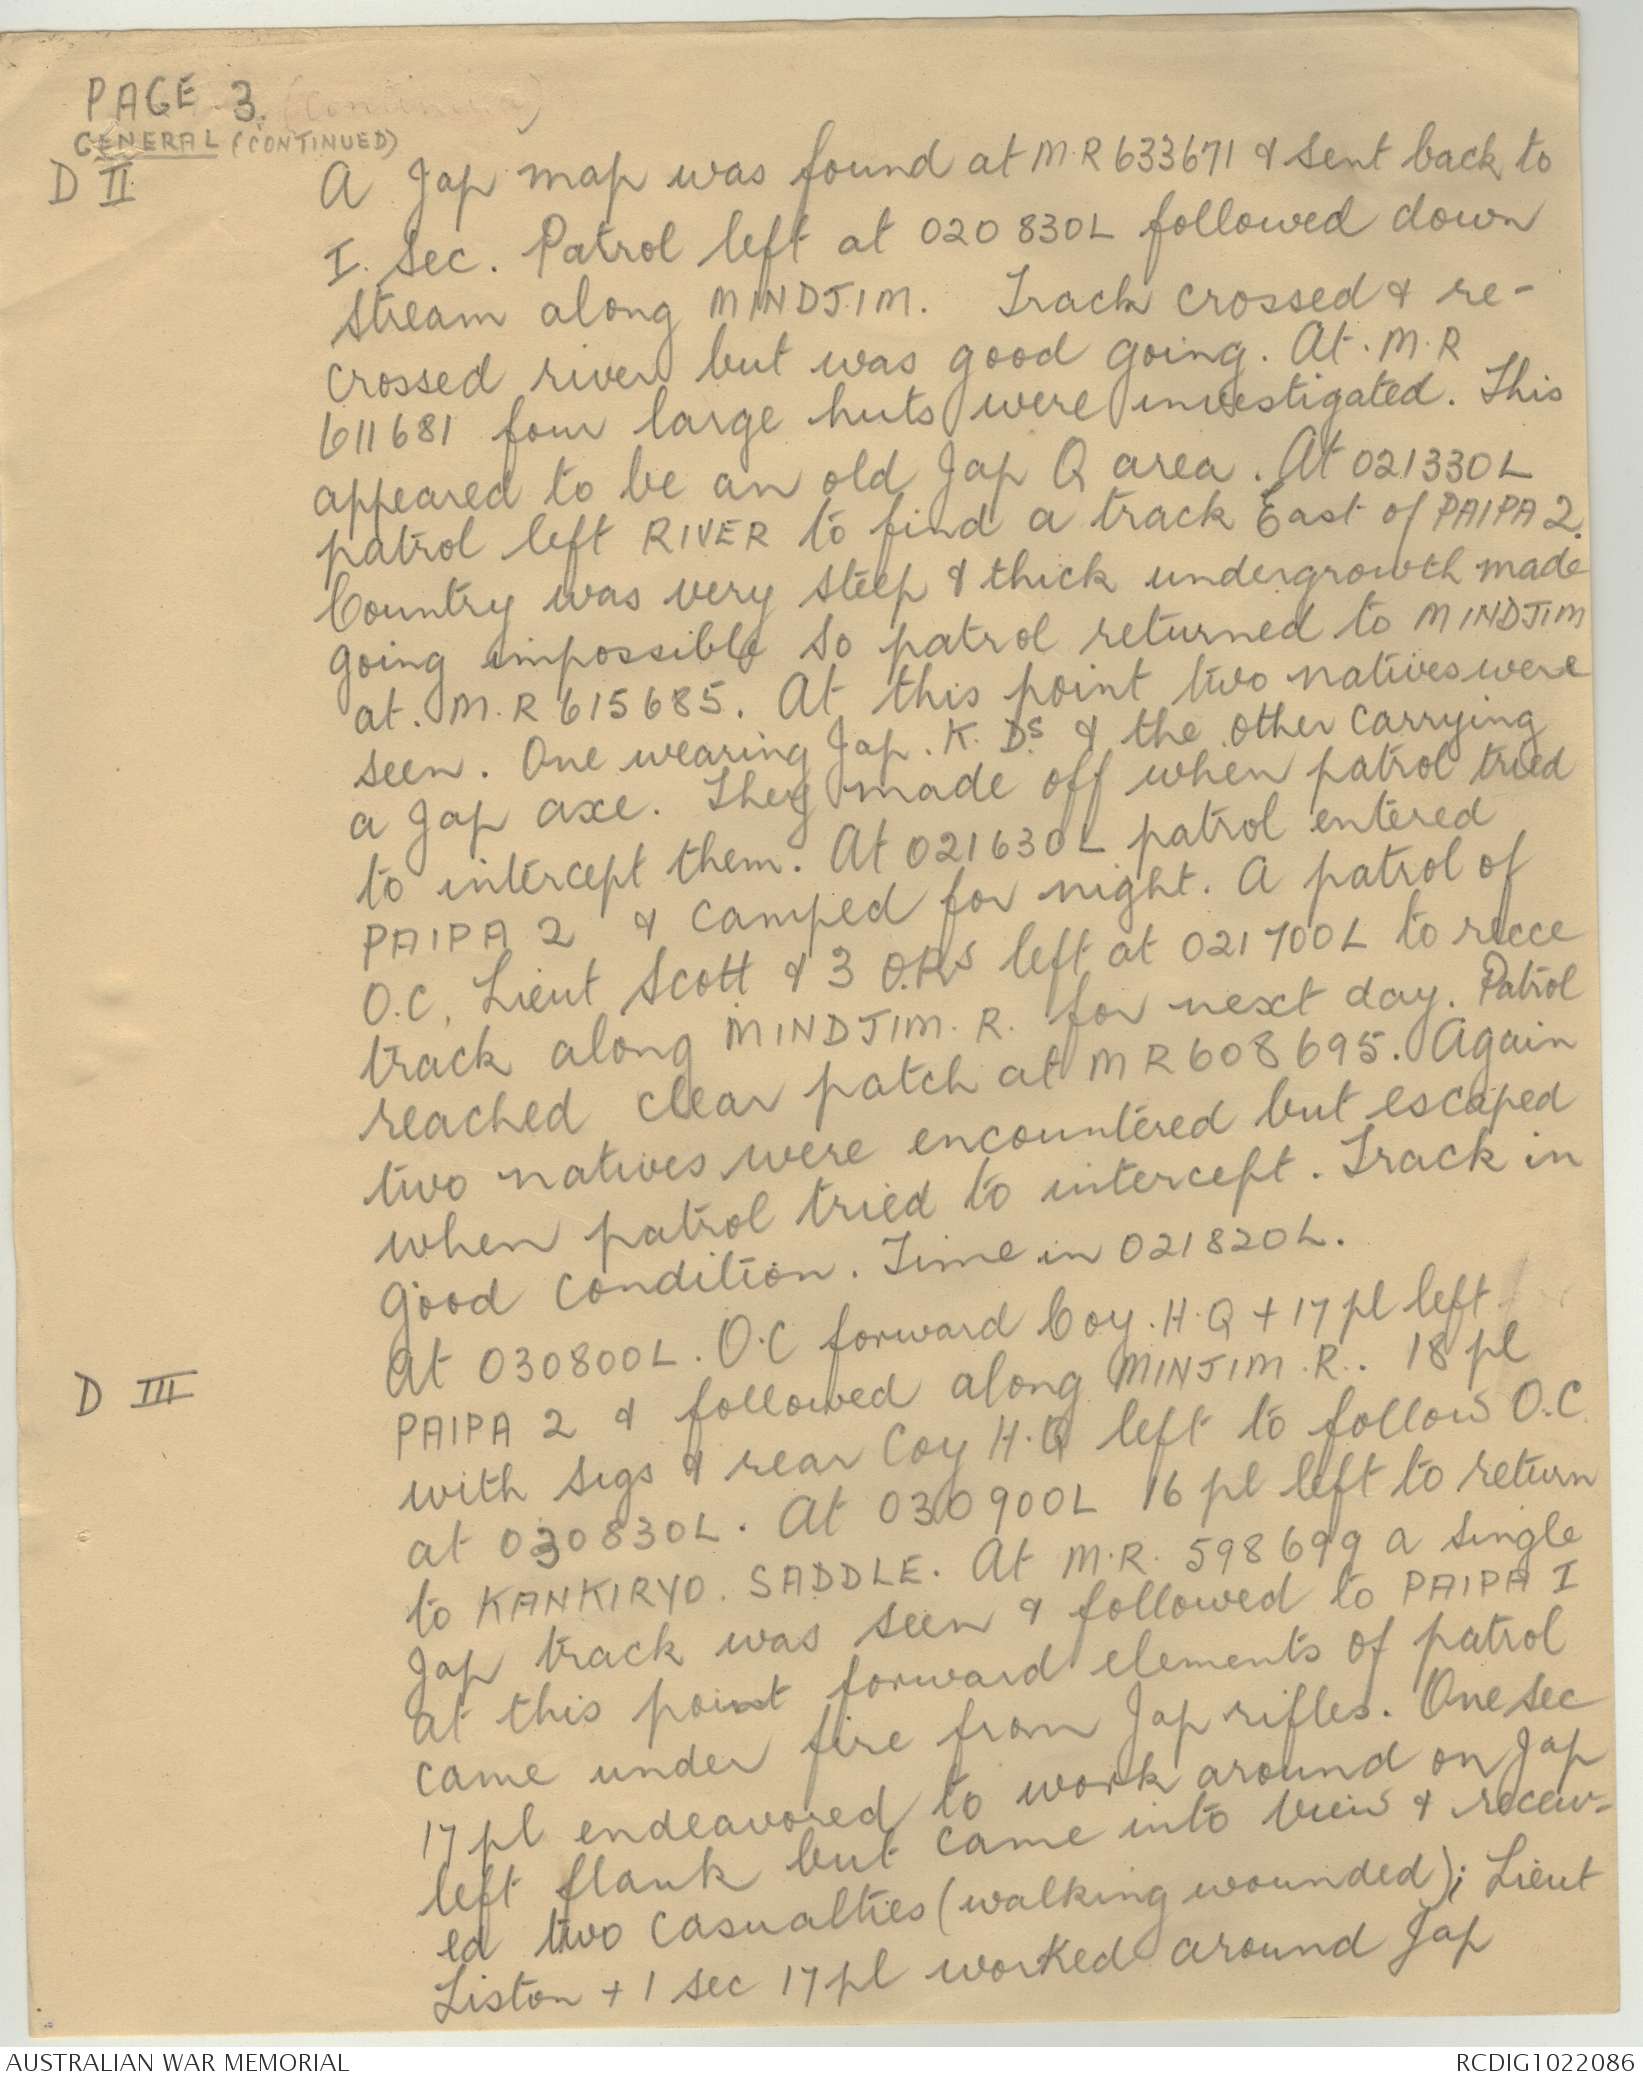 PAGE 3. (Continued)
GENERAL (CONTINUED)
D II
A Jap map was found at M.R 633671 & sent back to
I. Sec. Patrol left at 020830L followed down
stream along MINDJIM. Track crossed & re-
crossed river but was good going. At. M.R
611681 four large huts were investigated. This
appeared to be an old Jap Q area. At 021330L
patrol left RIVER to find a track East of PAIPA 2.
Country was very steep & thick undergrowth made
going impossible so patrol returned to MINDJIM
at. M.R 615685. At this point two natives were
seen. One wearing Jap. K. Ds & the other carrying
a Jap axe. They made off when patrol tried
to intercept them. At 021630L patrol entered
PAIPA 2 & camped for night. A patrol of
O.C, Lieut Scott & 3 O.Rs left at 021700L to recce
track along MINDJIM. R. for next day. Patrol
reached clear patch at MR 608695. Again
two natives were encountered but escaped
when patrol tried to intercept. Track in
good condition. Time in 021820L.
D III
At 030800L. O.C forward Coy. H.Q + 17 pl left
PAIPA 2 & followed along MINJIM. R.. 18 pl
with sigs & rear Coy H.Q left to follow O.C.
at 030830L. At 030900L 16 pl left to return
to KANKIRYO. SADDLE. At M.R. 598699 a single
Jap track was seen & followed to PAIPA I
at this point forward elements of patrol
came under fire from Jap rifles. One sec
17 pl endeavored to work around on Jap
left flank but came into view & receiv-
ed two casualties (walking wounded); Lieut
Liston + 1 sec 17 pl worked around Jap
AUSTRALIAN WAR MEMORIAL
RCDIG1022086